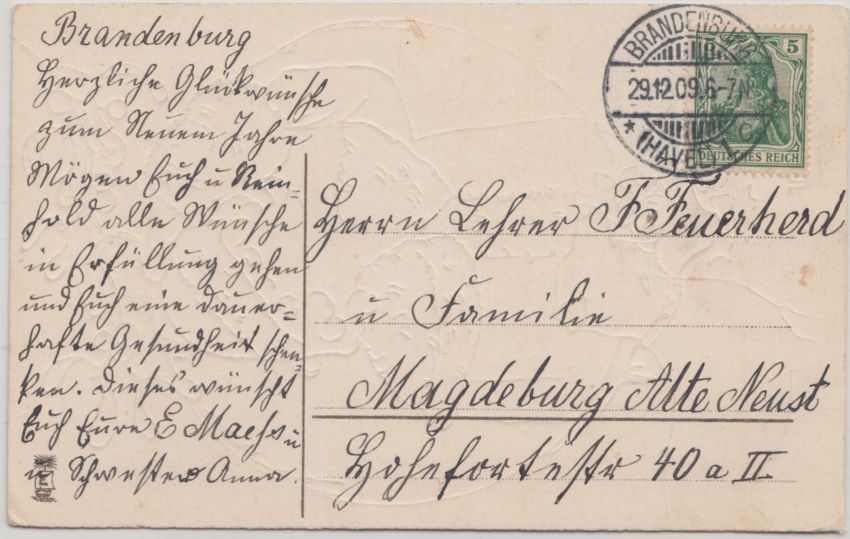 Brandenburg
Herzliche Glückwünsche
zum Neuem Jahre
Mögen Euch u Rein=
hold alle Wünsche
in Erfüllung gehen
und Euch eine dauer=
hafte Gesundheit schen=
ken. Dieses wünscht
Euch Eure E u
u Schwester Anna.
BRANDENBURG
29.12.09.6-7N
* (HAVEL) 1 C
5
DEUTSCHES REICH
Herrn Lehrer F Feuerherd
u Familie
Magdeburg Alte Neust
Hohefortestr 40 a II